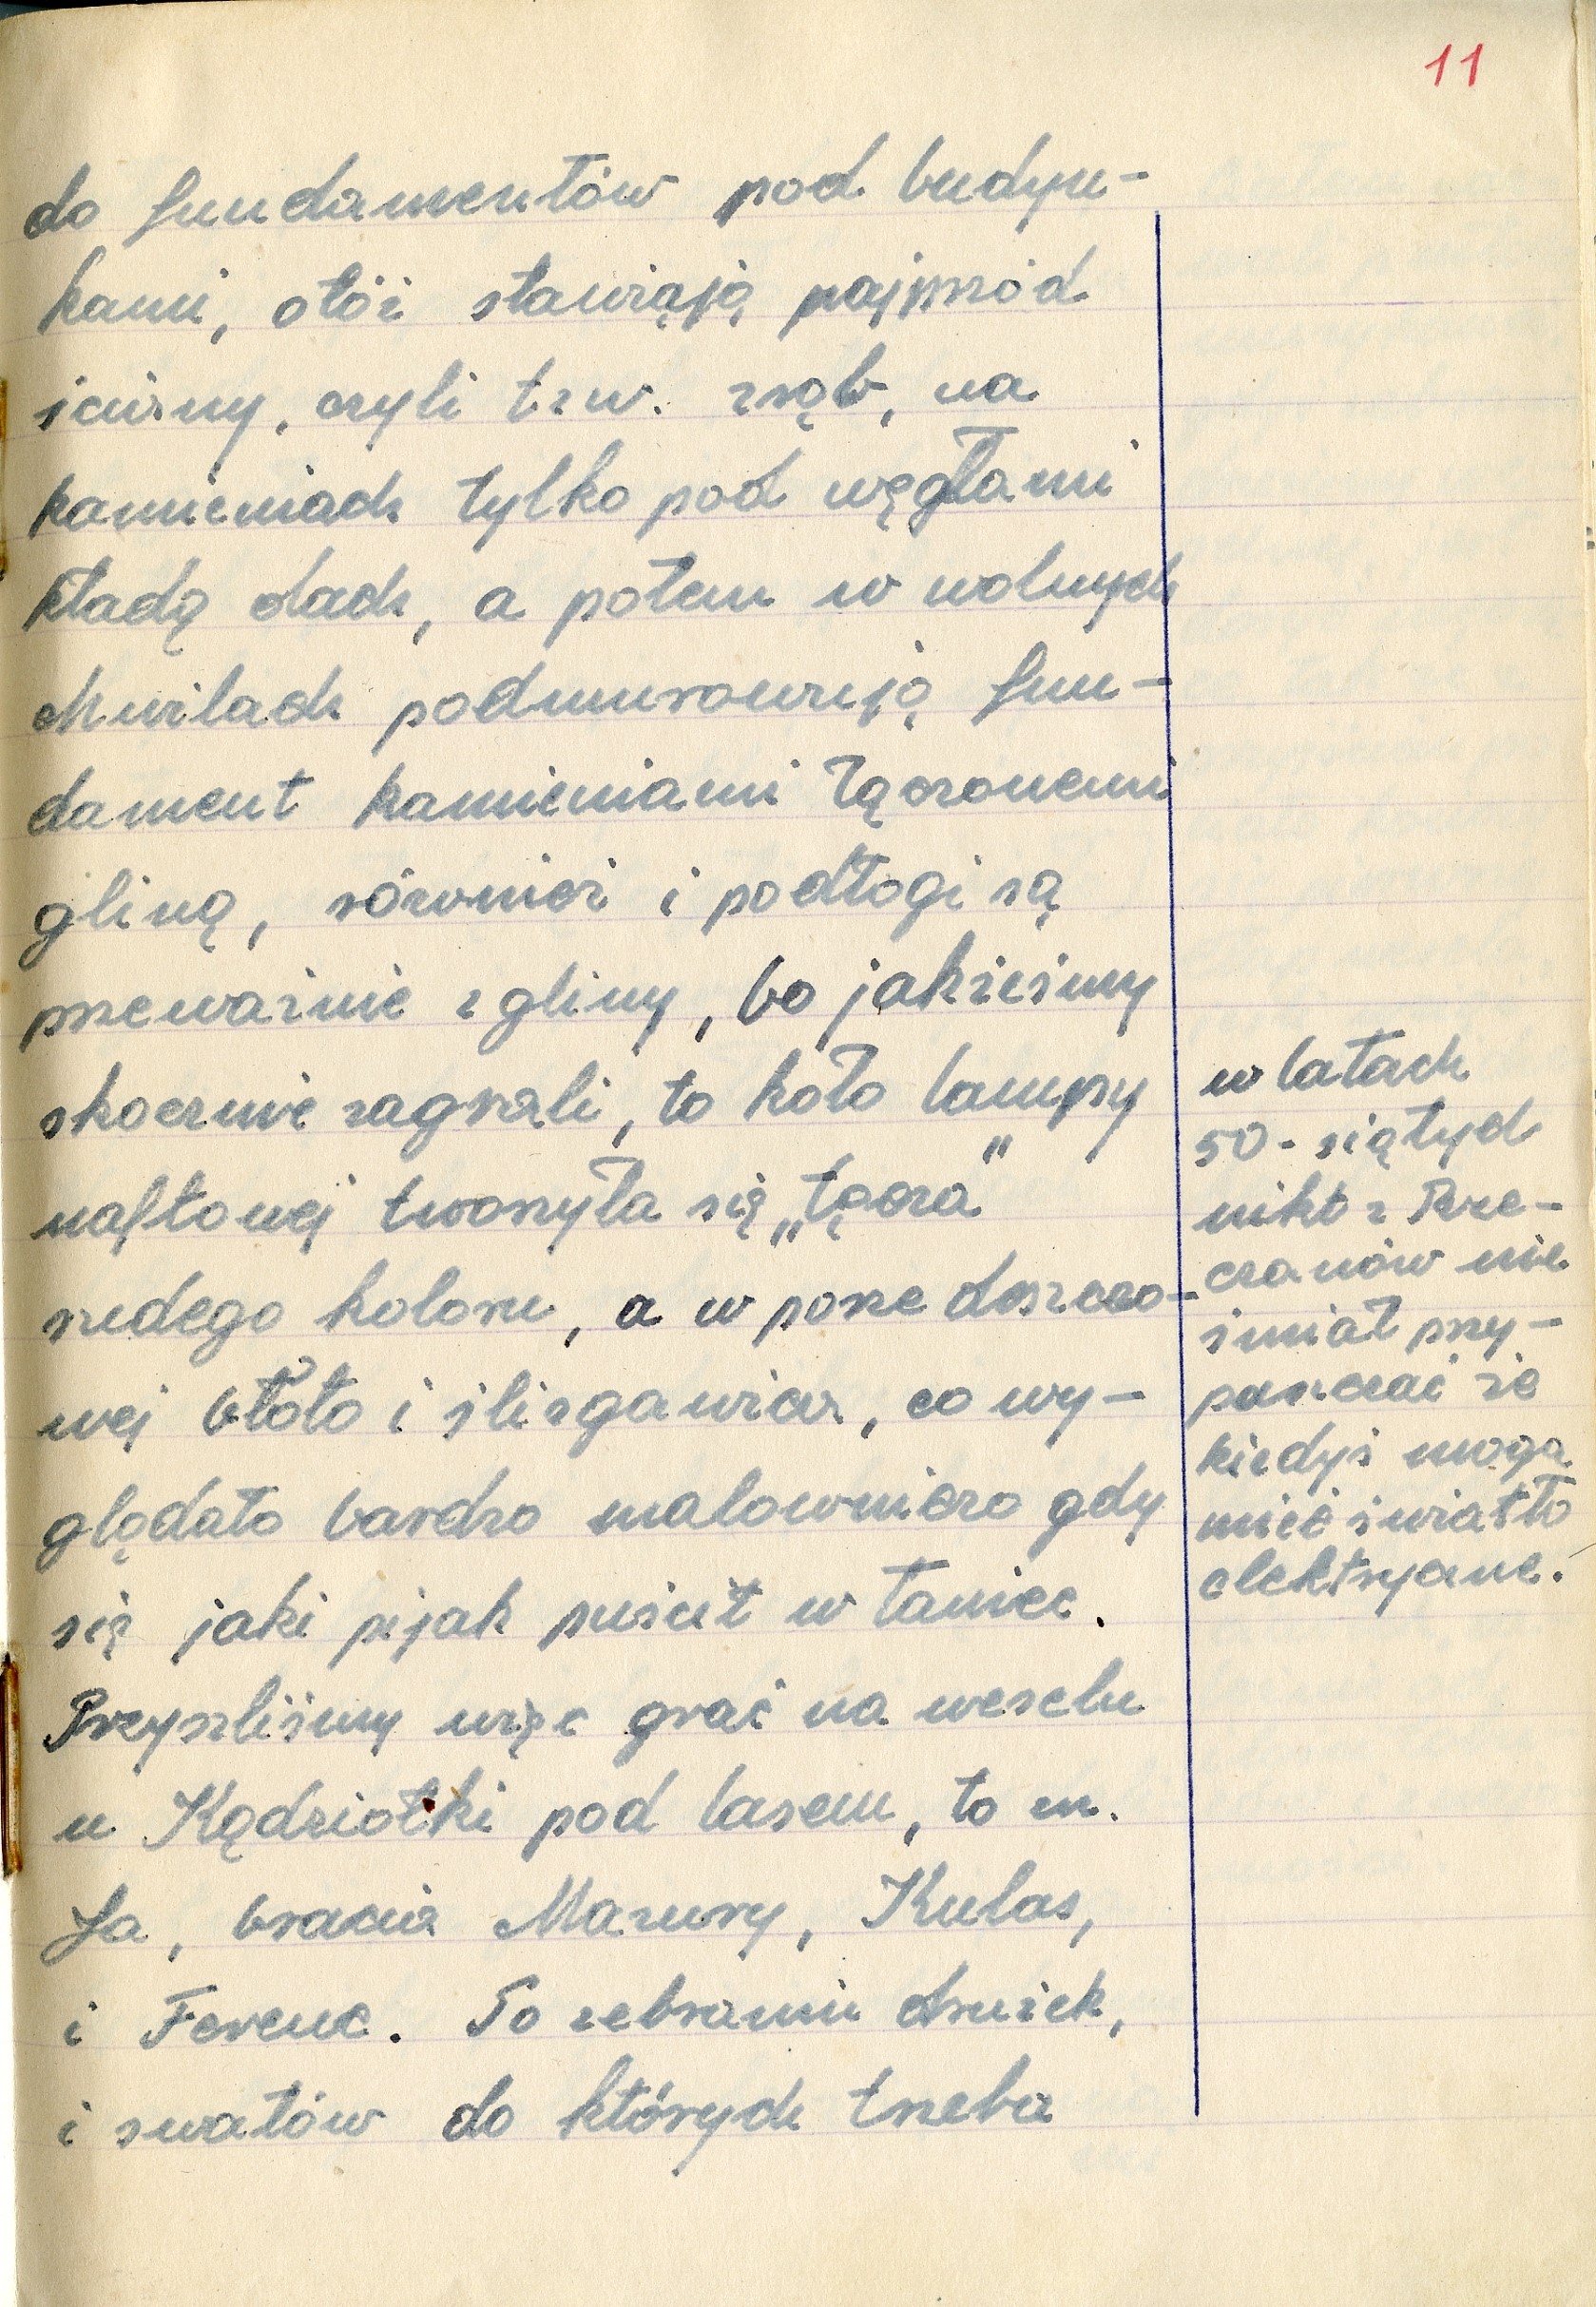 11
do fundamentów pod budyn-
kami, otóż stawiają najpród
ściany, czyli tzw. zrąb, na
kamieniach tylko pod węgłami
kładą dach, a potem w wolnych
chwilach podmurowują fun-
dament kamieniami łączonemi
gliną, również i podłogi są
przeważnie z gliny, bo jakżeśmy
skocznie zagrali, to koło lampy
naftowej tworzyła się „tęcza"
rudego koloru, a w porze deszczo-
wej błoto i ślizgawica, co wy-
glądało bardzo malowniczo gdy
się jaki pijak puścił w taniec.
Przyszliśmy więc grać na weselu
u Kądziołki pod lasem, to zn.
Ja, bracia Mazury, Kulas,
i Ferenc. Po zebraniu drużek,
i swatów do których trzeba
w latach
50-siątych
nikt z Porę-
czanów nie
śmiał przy-
puszczać że
kiedyś mogą
mieć światło
elektryczne.